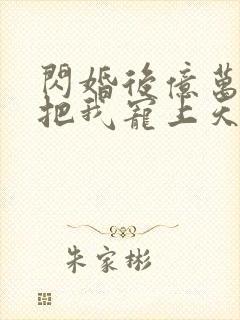 閃婚後億萬
把我寵上天
朱家彬